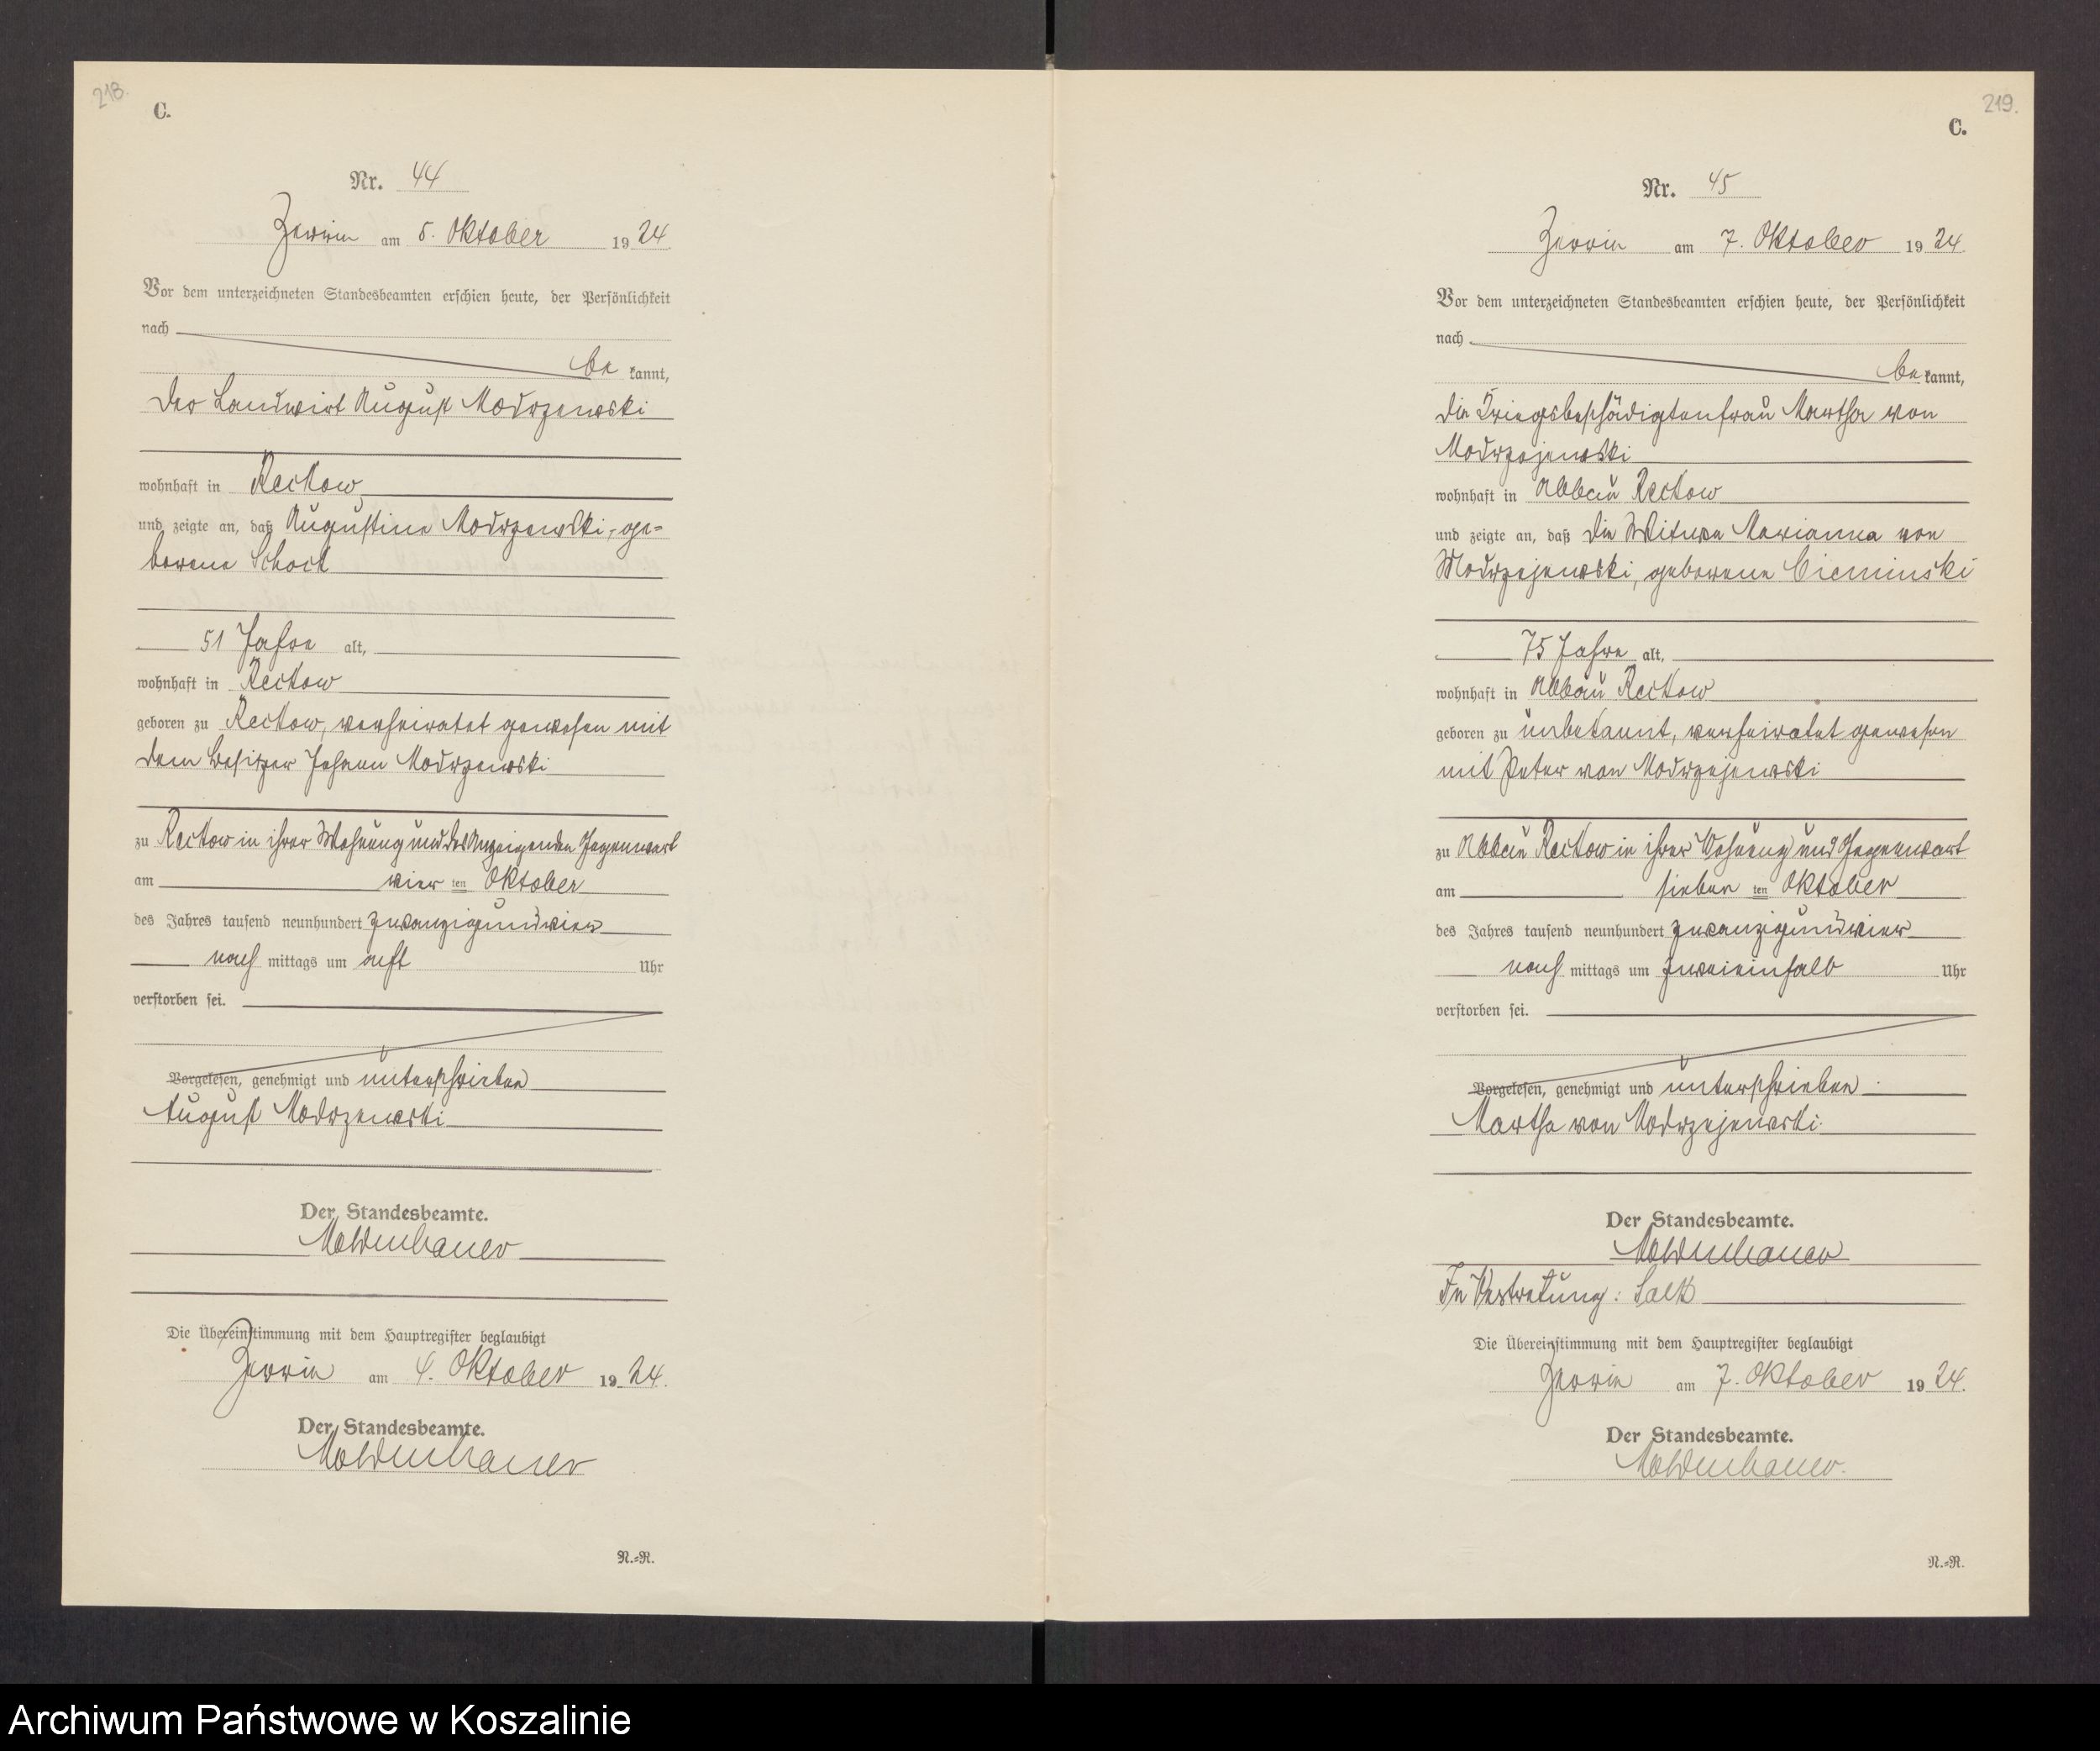 218.
C.
Nr. 44
Zerrin am 5. Oktober 1924
Vor dem unterzeichneten Standesbeamten erschien heute, der Persönlichkeit
nach
be kannt,
der Landwirt August Modrzewski
wohnhaft in Reckow
und zeigte an, daß Augustine Modrzewski, ge=
borene Schock
51 Jahre alt,
wohnhaft in Reckow
geboren zu Reckow, verheiratet gewesen mit
dem Besitzer Johann Modrzewski
zu Reckow in ihrer Wohnung und des Anzeigenden Gegenwart
am vier ten Oktober
des Jahres tausend neunhundert zwanzigundvier
nach mittags um acht Uhr
verstorben sei.
Vorgelesen, genehmigt und unterschrieben
August Modrzewski
Der Standesbeamte.
Moldenhauer
Die Übereinstimmung mit dem Hauptregister beglaubigt
Zerrin am 4. Oktober 1924.
Der Standesbeamte.
Moldenhauer
N.=R.
219.
C.
Nr. 45
Zerrin am 7. Oktober 1924.
Vor dem unterzeichneten Standesbeamten erschien heute, der Persönlichkeit
nach
be kannt,
die Kriegsbeschädigtenfrau Martha von
Modrzejewski
wohnhaft in Abbau Reckow
und zeigte an, daß die Witwe Marianna von
Modrzejewski, geborene Cieminski
75 Jahre alt,
wohnhaft in Abbau Reckow
geboren zu unbekannt, verheiratet gewesen
mit Peter von Modrzejewski
zu Abbau Reckow in ihrer Wohnung und Gegenwart
am sieben ten Oktober
des Jahres tausend neunhundert zwanzigundvier
nach mittags um zweieinhalb Uhr
verstorben sei.
Vorgelesen, genehmigt und unterschrieben.
Martha von Modrzejewski.
Der Standesbeamte.
Moldenhauer
In Vertretung:
Die Übereinstimmung mit dem Hauptregister beglaubigt
Zerrin am 7. Oktober 1924.
Der Standesbeamte.
Moldenhauer.
N.=R.
Archiwum Państwowe w Koszalinie